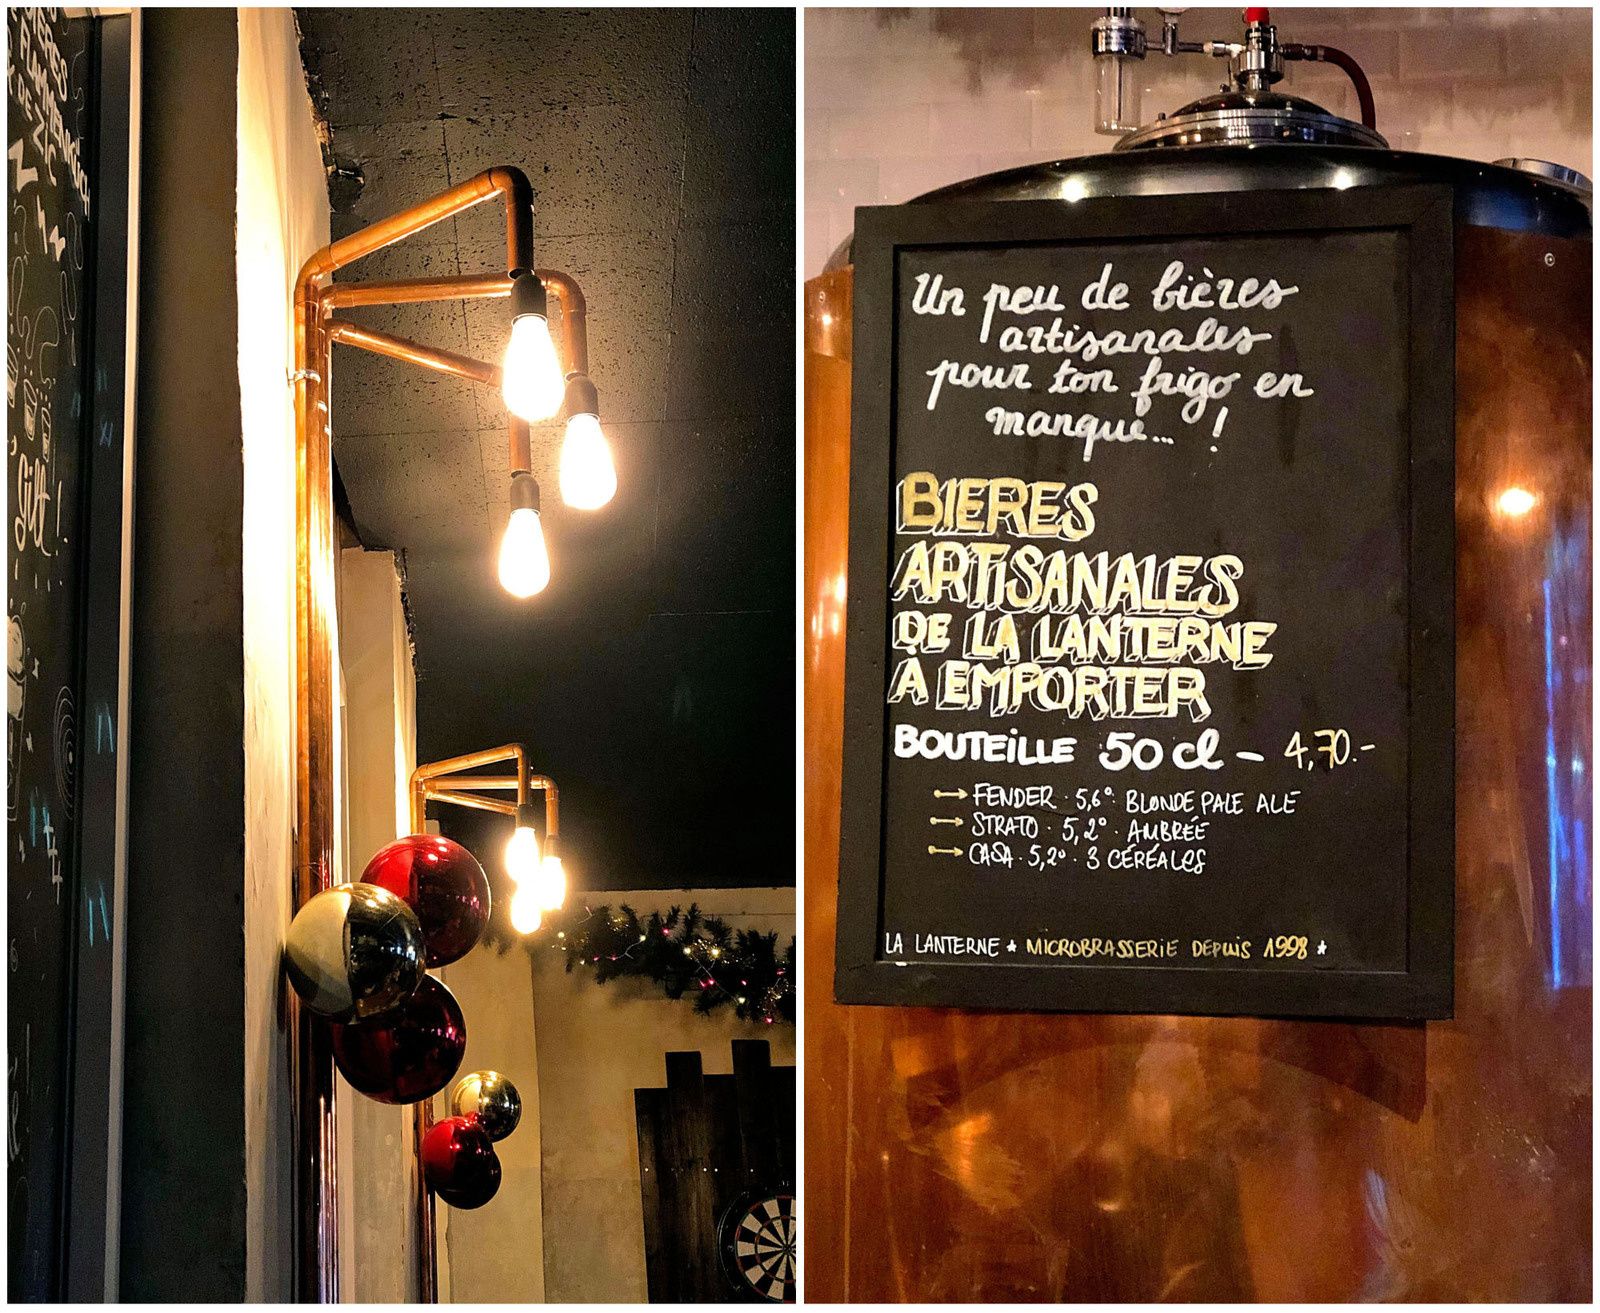 FLAMMENKÜCH
DE ZIC
Gift !
Un peu de bières
artisanales
pour ton frigo en
manque... !
BIERES
ARTISANALES
DE LA LANTERNE
À EMPORTER
BOUTEILLE 50 cl - 4,70.-
FENDER · 5,6° · BLONDE PALE ALE
STRATO · 5,2° · AMBRÉE
CASA · 5,2° · 3 CÉRÉALES
LA LANTERNE * MICROBRASSERIE DEPUIS 1998 *